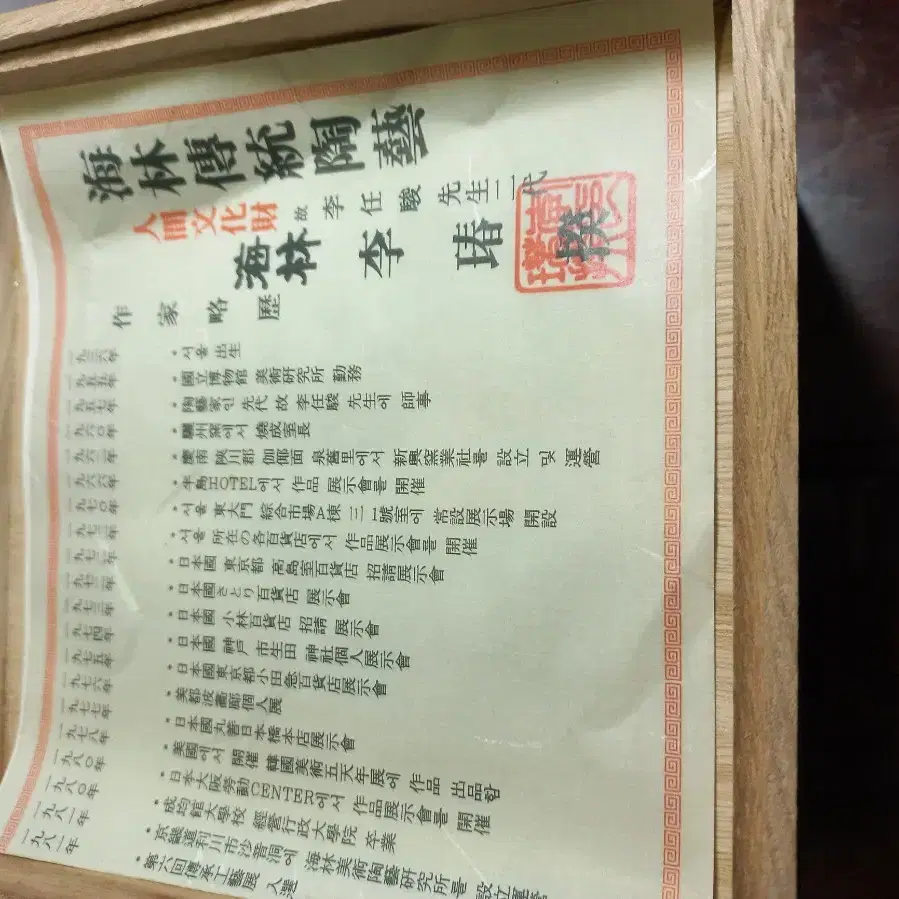 海林傳統陶藝
人間文化財 故 李任駿 先生 二代
海林 李 瑃 撰
作家略歷
一九三六年 • 서울 出生
一九五五年 • 國立博物館 美術硏究所 勤務
一九五七年 • 陶藝家인 先代 故 李任駿 先生에 師事
一九六〇年 • 驪州窯에서 燒成室長
一九六二年 • 慶南 陜川郡 伽倻面 泉舊里에서 新興窯業社를 設立 및 運營
一九六六年 • 半島HOTEL에서 作品 展示會를 開催
一九七〇年 • 서울 東大門 綜合市場A棟 三一號室에 常設展示場 開設
一九七二年 • 서울 所在の各百貨店에서 作品展示會를 開催
一九七二年 • 日本國 東京都 高島室百貨店 招請展示會
一九七三年 • 日本國さとり百貨店 展示會
一九七三年 • 日本國 小林百貨店 招請 展示會
一九七四年 • 日本國 神戶 市生田 神社個人展示會
一九七五年 • 日本國東京都小田急百貨店展示會
一九七六年 • 美都波畵廊個人展
一九七七年 • 日本國丸善日本橋本店展示會
一九七八年 • 美國에서 開催 韓國美術五天年展에 作品 出品함
一九八〇年 • 日本大阪勞動CENTER에서 作品展示會를 開催
一九八〇年 • 成均館大學校 經營行政大學院 卒業
一九八一年 • 京畿道利川市沙音洞에 海林美術陶藝硏究所를 設立運營
一九八一年 • 第六回傳承工藝展 入選